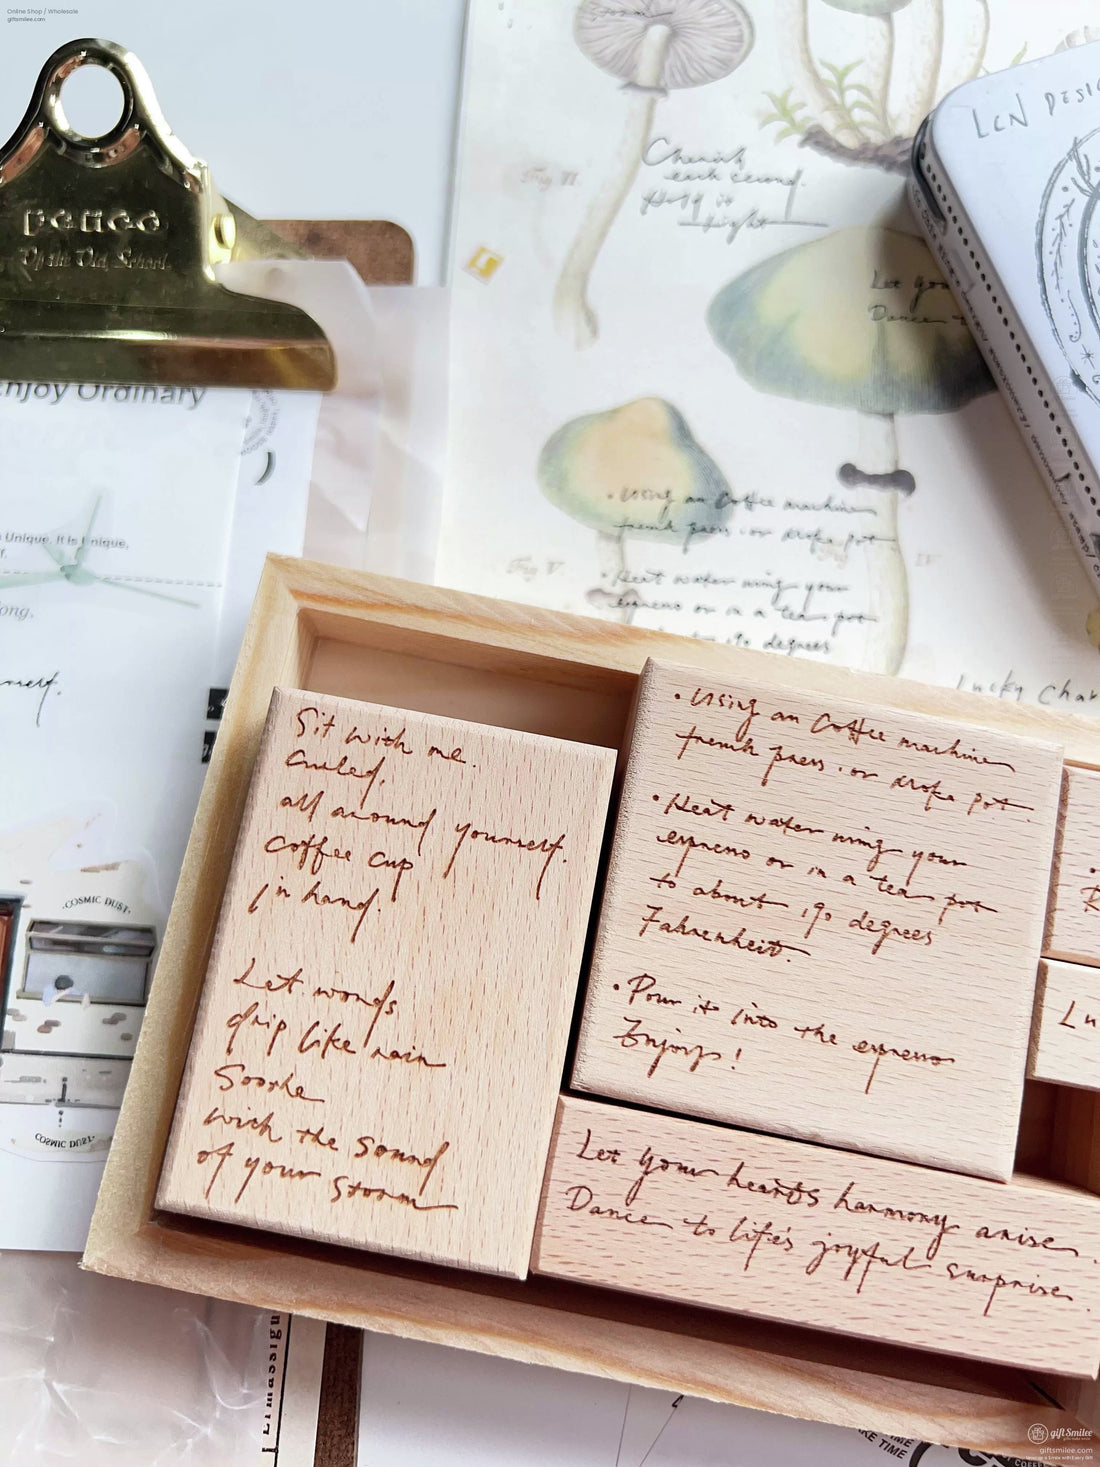 Online Shop / Wholesale
giftsmilee.com
PENCO
Of the Old School.
Enjoy Ordinary
Unique, It is Unique,
Cherish
each second.
Hold it
tight
Fig VI.
LCN DESIG
Let you
Dance
• Using an Coffee machine
french press . or
pot
Fig V.
IV
• Heat water using your
espresso or in a tea pot
190 degrees
Lucky Char
Sit with me.
Curled,
all around yourself.
Coffee cup
in hand.
Let words
drip like rain
Soothe
with the sound
of your storm
• Using an Coffee machine
french press . or moka pot.
• Heat water using your
espresso or in a tea pot
to about 190 degrees
Fahrenheit.
• Pour it into the espresso
Enjoys!
Lu
Let your hearts harmony arise.
Dance to life's joyful surprise.
•COSMIC DUST•
COSMIC DUST•
TIME
TAKE TIME
gift Smilee
giftsmilee.com